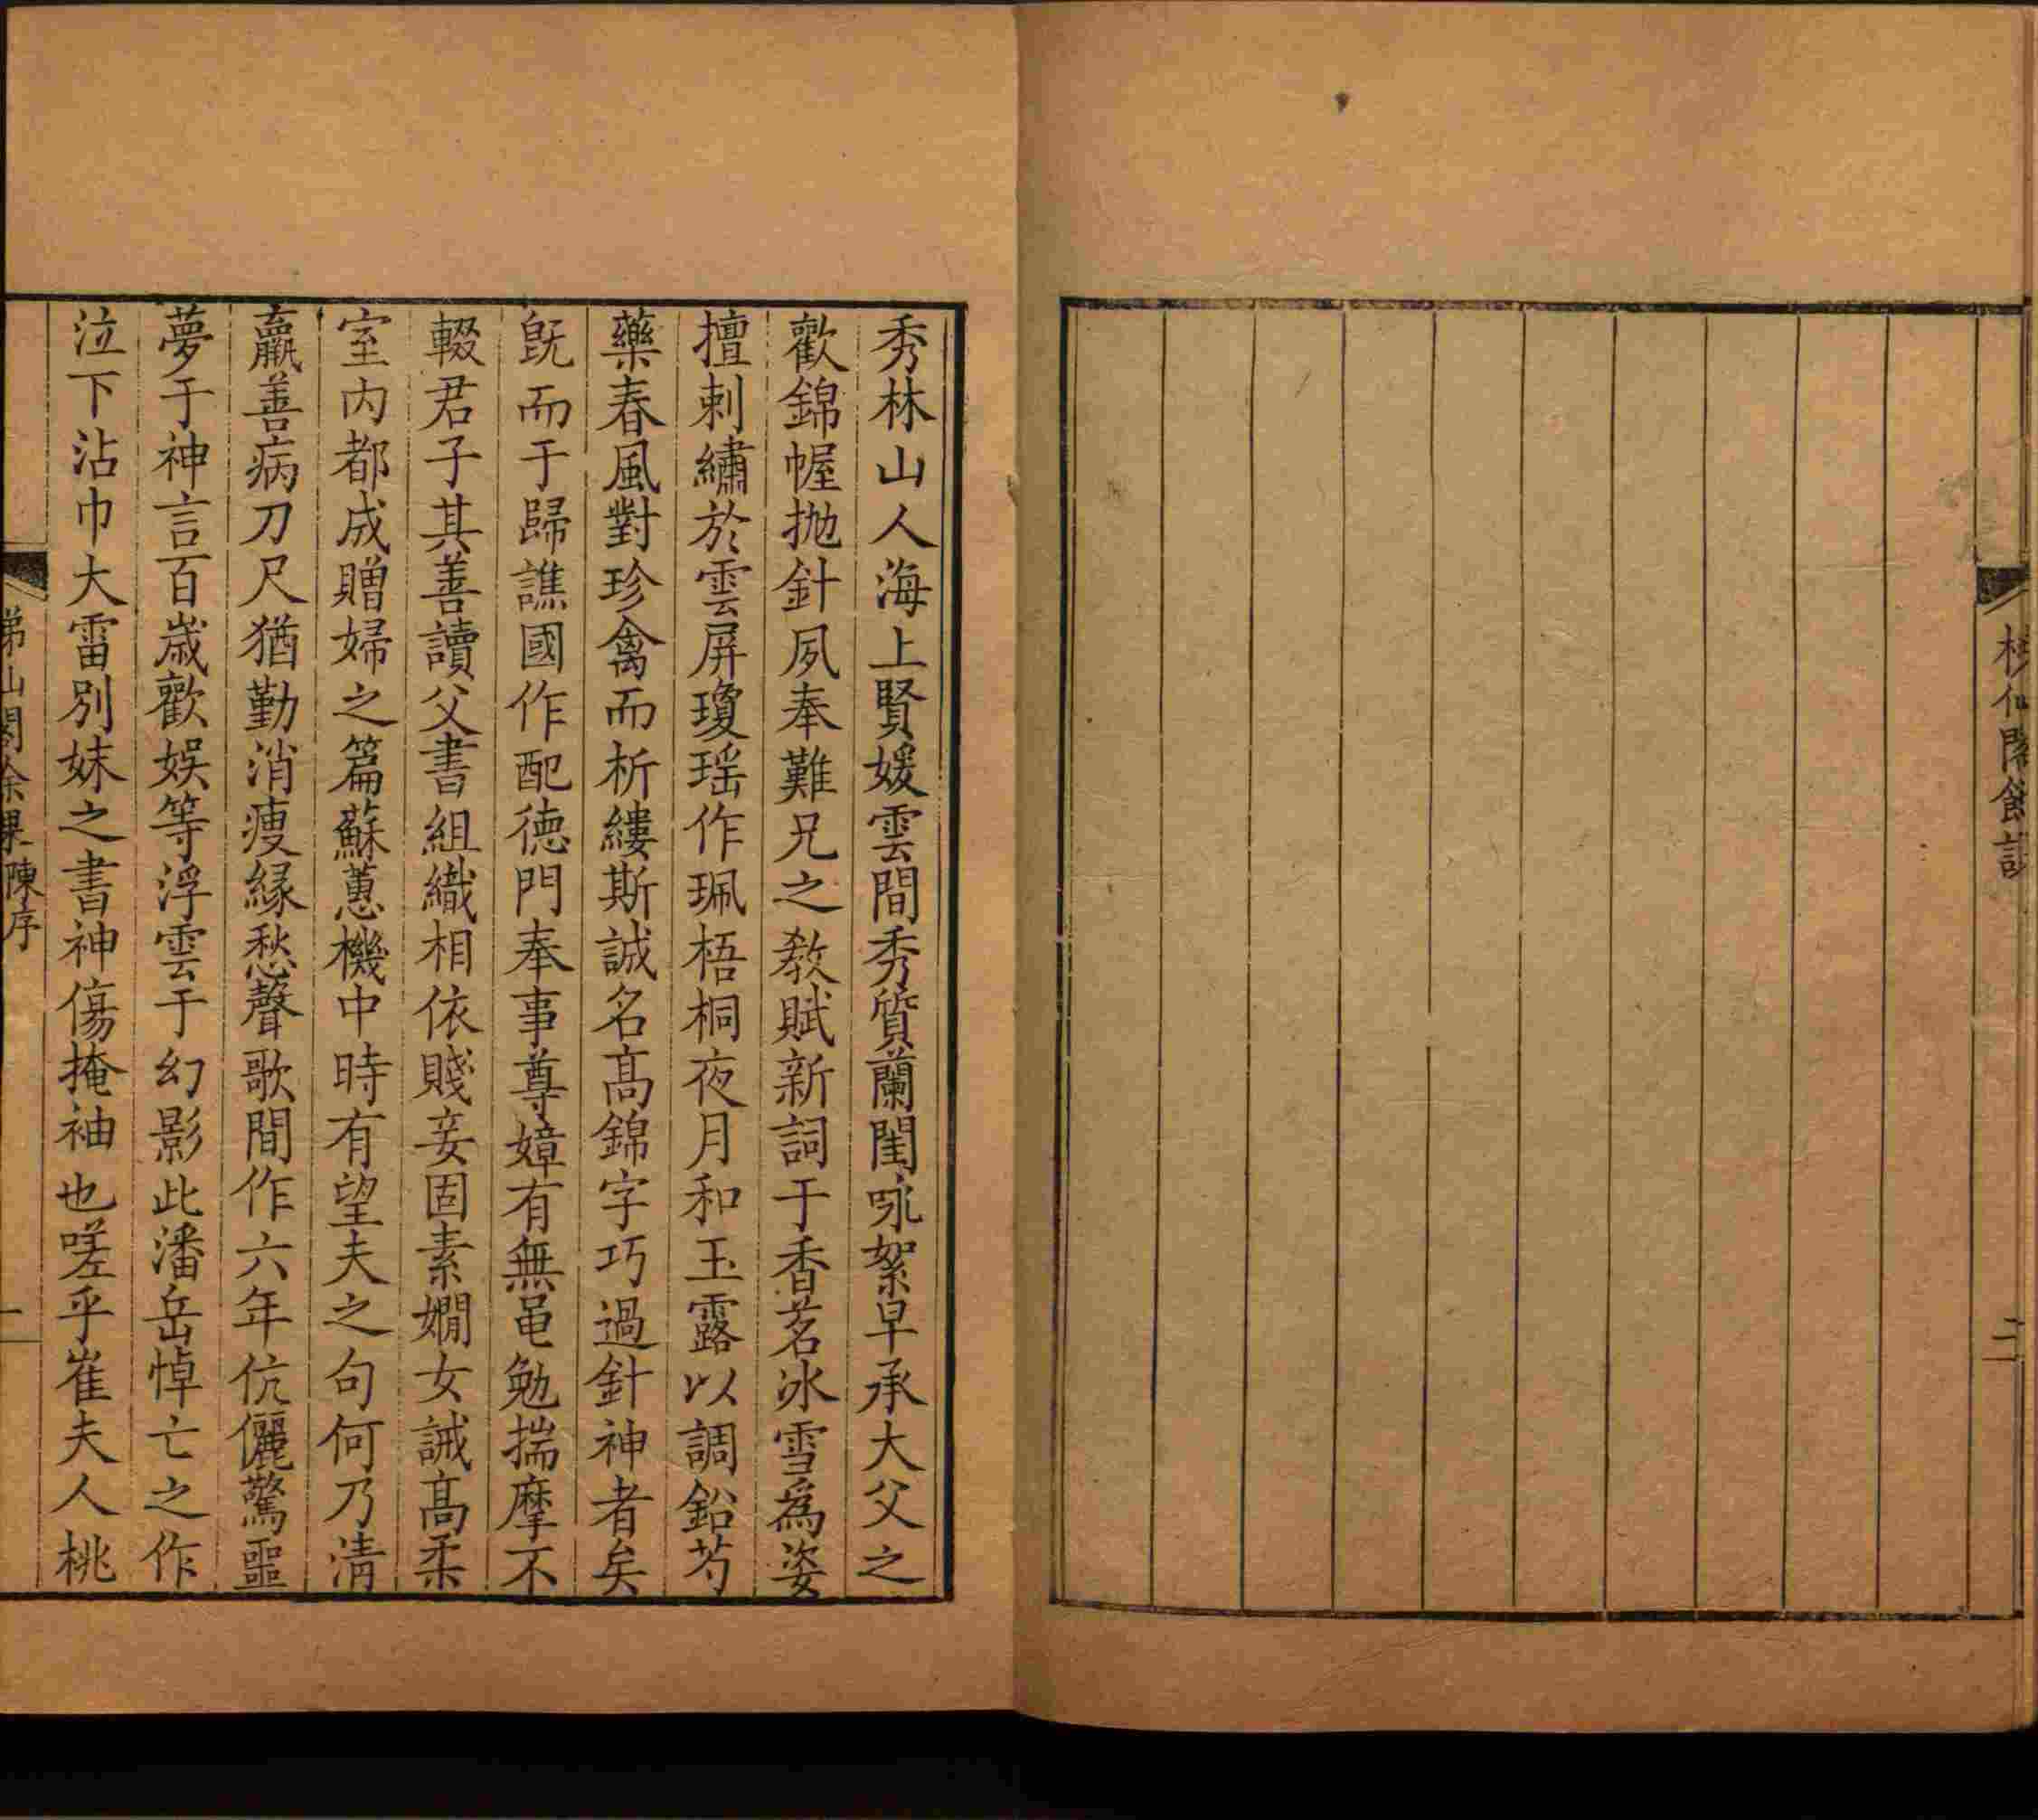 二
秀林山人海上賢媛雲間秀質蘭閨咏絮早承大父之
歡錦幄拋針夙奉難兄之教賦新詞于香茗冰雪為姿
擅刺繡於雲屏瓊瑶作珮梧桐夜月和玉露以調鉛芍
藥春風對珍禽而析縷斯誠名高錦字巧過針神者矣
既而于歸譙國作配德門奉事尊嫜有無黽勉揣摩不
輟君子其善讀父書組織相依賤妾固素嫺女誡高柔
室内都成贈婦之篇蘇蕙機中時有望夫之句何乃清
羸善病刀尺猶勤消瘦緣愁聲歌間作六年伉儷驚噩
夢于神言百嵗歡娛等浮雲于幻影此潘岳悼亡之作
泣下沾巾大雷別妹之書神傷掩袖也嗟乎崔夫人桃
山閣余果陳序
一